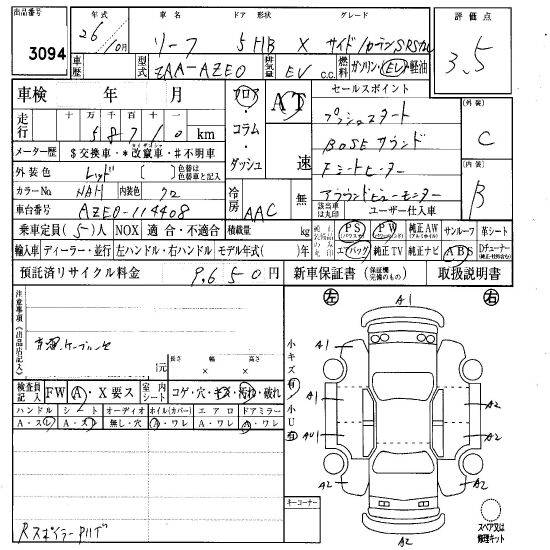 出品番号 年式 車名 ドア 形状 グレード 評価点
3094 26年10月 リーフ 5HB X サイド/カーテンSRSエアB 3.5
車歴 型式 ZAA-AZE0 排気量 EV c.c. 燃料 ガソリン・EV・軽油
車検 年 月 フロア・コラム・ダッシュ AT セールスポイント
十万千百十一 プッシュスタート 【外装】
走行 58710 km BOSEサウンド C
メーター歴 $交換車・*改竄車・#不明車 速 Fシートヒーター
外装色 レッド [ ] 色替は色替車と記入 【内装】
カラーNo. NAH 内装色 クロ 冷房 AAC 無 アラウンドビューモニター B
車台番号 AZE0-114408 該当車は丸印 ユーザー仕入車
乗車定員(5)人 NOX 適合・不適合 積載量 kg PS(パワステ) PW(パワーウィンド) 純正AW(アルミホイル) サンルーフ 革シート
輸入車 ディーラー・並行 左ハンドル・右ハンドル モデル年式( )年 エアバッグ 純正TV 純正ナビ ABS Dチューナー(純正・社外含む)
預託済リサイクル料金 9,650円 新車保証書(保証継続の完備のもの) 取扱説明書
注意事項(出品店記入)
充電ケーブル
長さ 幅 高さ
元 × ×
検査員記入 FW A・X要ス 室内シート コゲ・穴・キズ・汚れ・破れ
ハンドル シート オーディオ ホイル(カバー) エアロ ドアミラー
A・スレ A・スレ 無し・穴 A・ワレ A・ワレ A・ワレ
Rスポイラー
キーコーナー
小キズ有 小U
左 A1 右
A1 A1
A1 A2
AU1 A2
A2 A2
A2
スペア又は修理キット